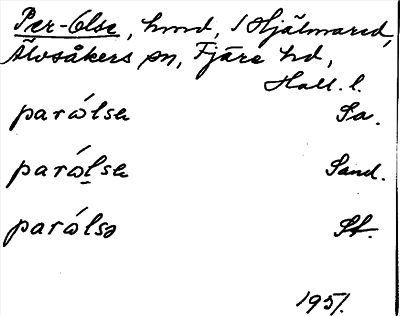 Per-Olsa, hmd, 1 Hjälmared,
Älvsåkers sn, Fjäre hd,
Hall. l.
parώlsa Sa.
parώlsa Sand.
parώlsə St.
1951.